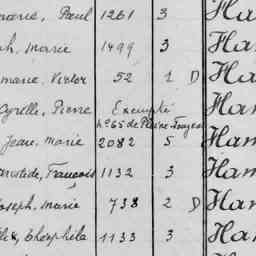 Paul 1261 3 Ha
ph, Marie 1499 3 Ham
marie, Victor 52 1 D Ha
Cyrille, Pierre Exempté Han
No 65 de
Jean, marie 2082 5 Ham
Aristide, François 1132 3 Ham
Joseph, marie 738 2 D Ha
Théophile 1133 3 Ha